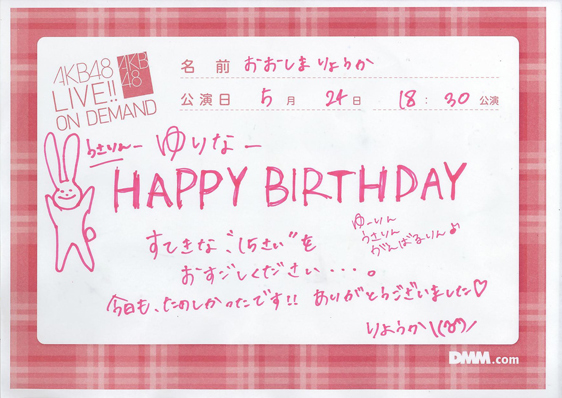 AKB48
LIVE!!
ON DEMAND
AKB
48
名 前 おおしまりょうか
公演日 5 月 24 日 18 : 30 公演
うさりんー
ゆりなー
HAPPY BIRTHDAY
すてきな"15さい"を
おすごしください・・・。
ゆーりん
うさりん
がんばるりん♪
今日も、たのしかったです!! ありがとうございました♡
りょうか
DMM.com